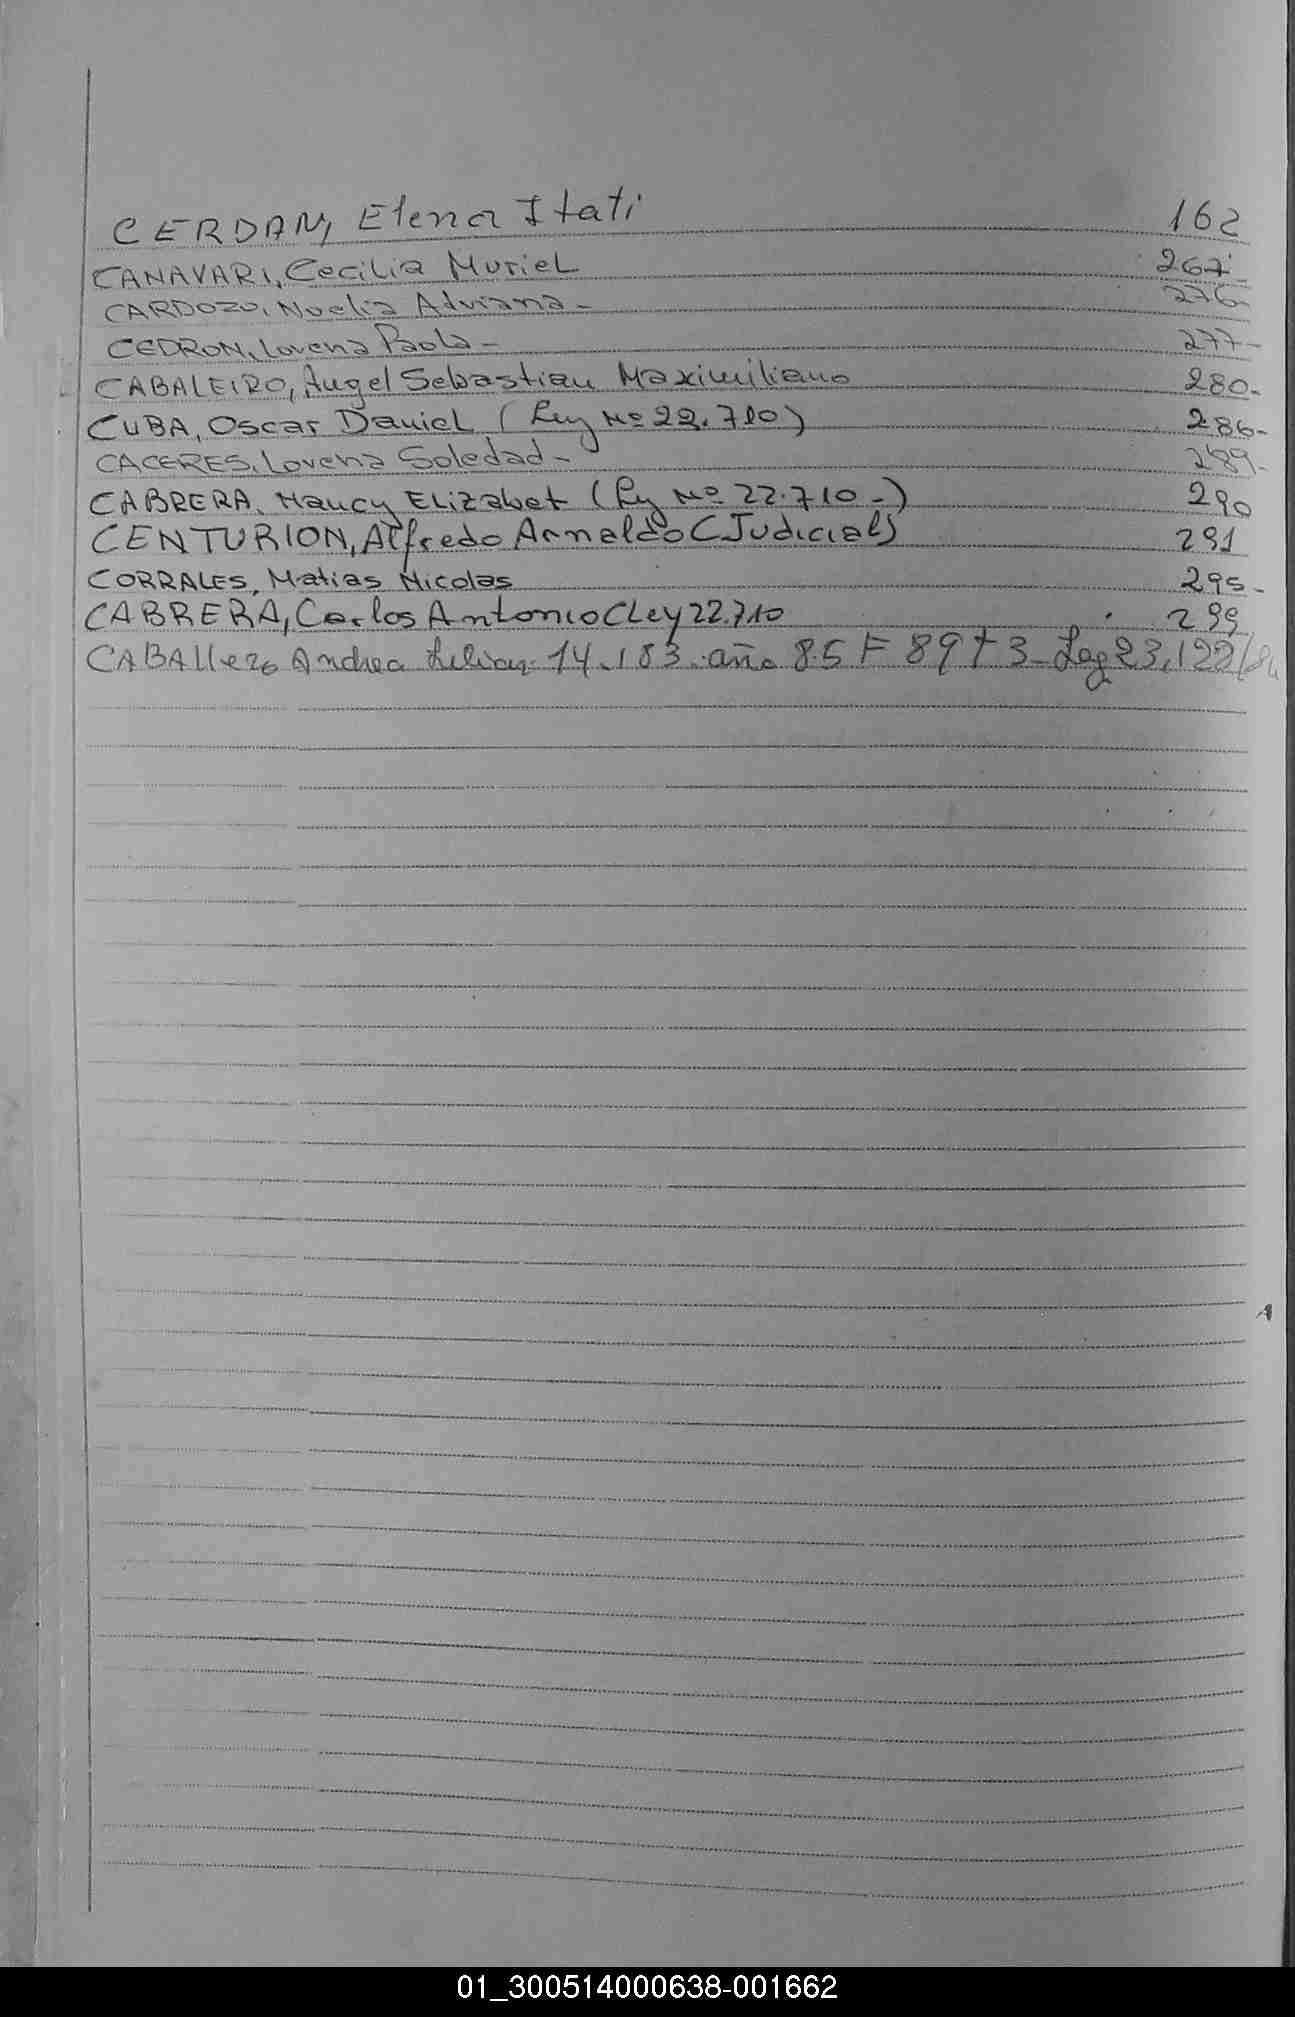 CERDAN, Elena Itati 162
CANAVARI, Cecilia Muriel 267-
CARDOZO, Noelia Adriana- 276-
CEDRON, Lorena Paola- 277-
CABALEIRO, Angel Sebastian Maximiliano 280-
CUBA, Oscar Daniel (Ley Nº 22.710) 286-
CACERES, Lorena Soledad- 289-
CABRERA, Nancy Elizabet (Ley Nº 22.710-) 290
CENTURION, Alfredo Arnaldo (Judicial) 291
CORRALES, Matias Nicolas 295-
CABRERA, Carlos Antonio (Ley 22.710 299
CABAllero Andrea Lilian 14.183 año 85 F 89 t 3- Leg 23.122/84
01_300514000638-001662